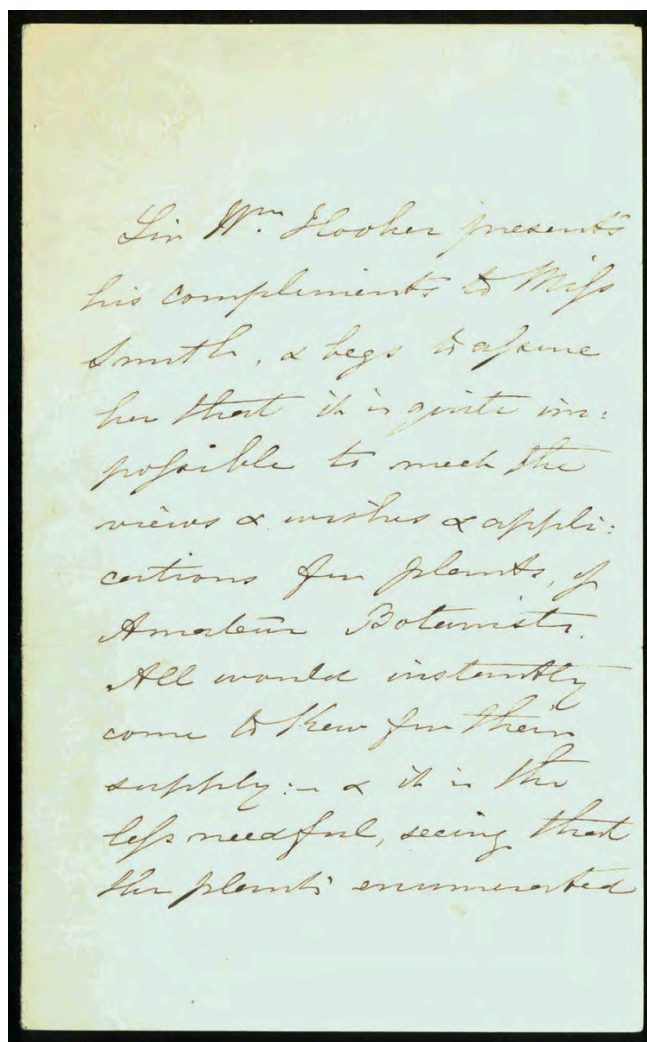 Sir Wm. Hooker presents
his compliments to Miss
Smith, & begs to assure
her that it is quite im:
possible to meet the
views & wishes & appli:
cations for plants, of
Amateur Botanists.
All would instantly
come to Kew for their
supply:— & it is the
less needful, seeing that
the plants enumerated